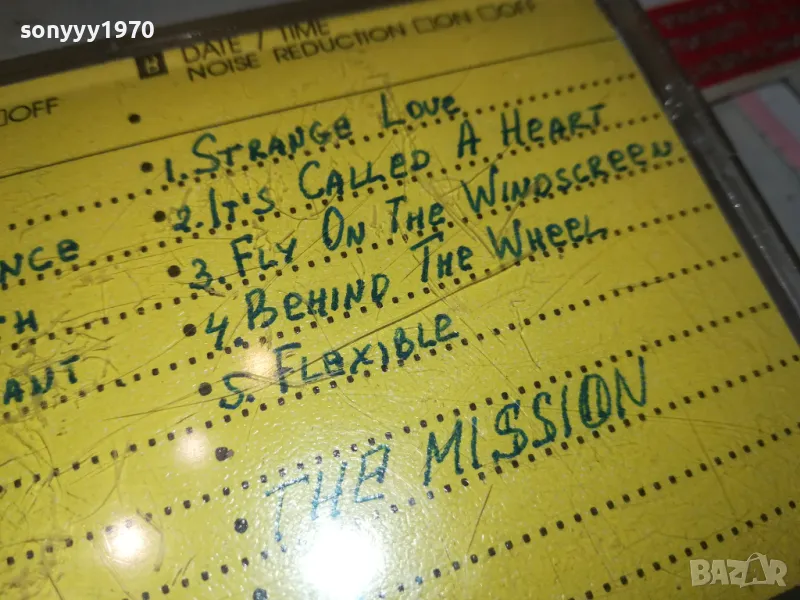 sonyyy1970
B DATE / TIME
NOISE REDUCTION □ON □OFF
□OFF
1. STRANGE LOVE
2. IT'S CALLED A HEART
3. FLY ON THE WINDSCREEN
4. BEHIND THE WHEEL
5. FLEXIBLE
THE MISSION
NCE
TH
ANT
BAZAR